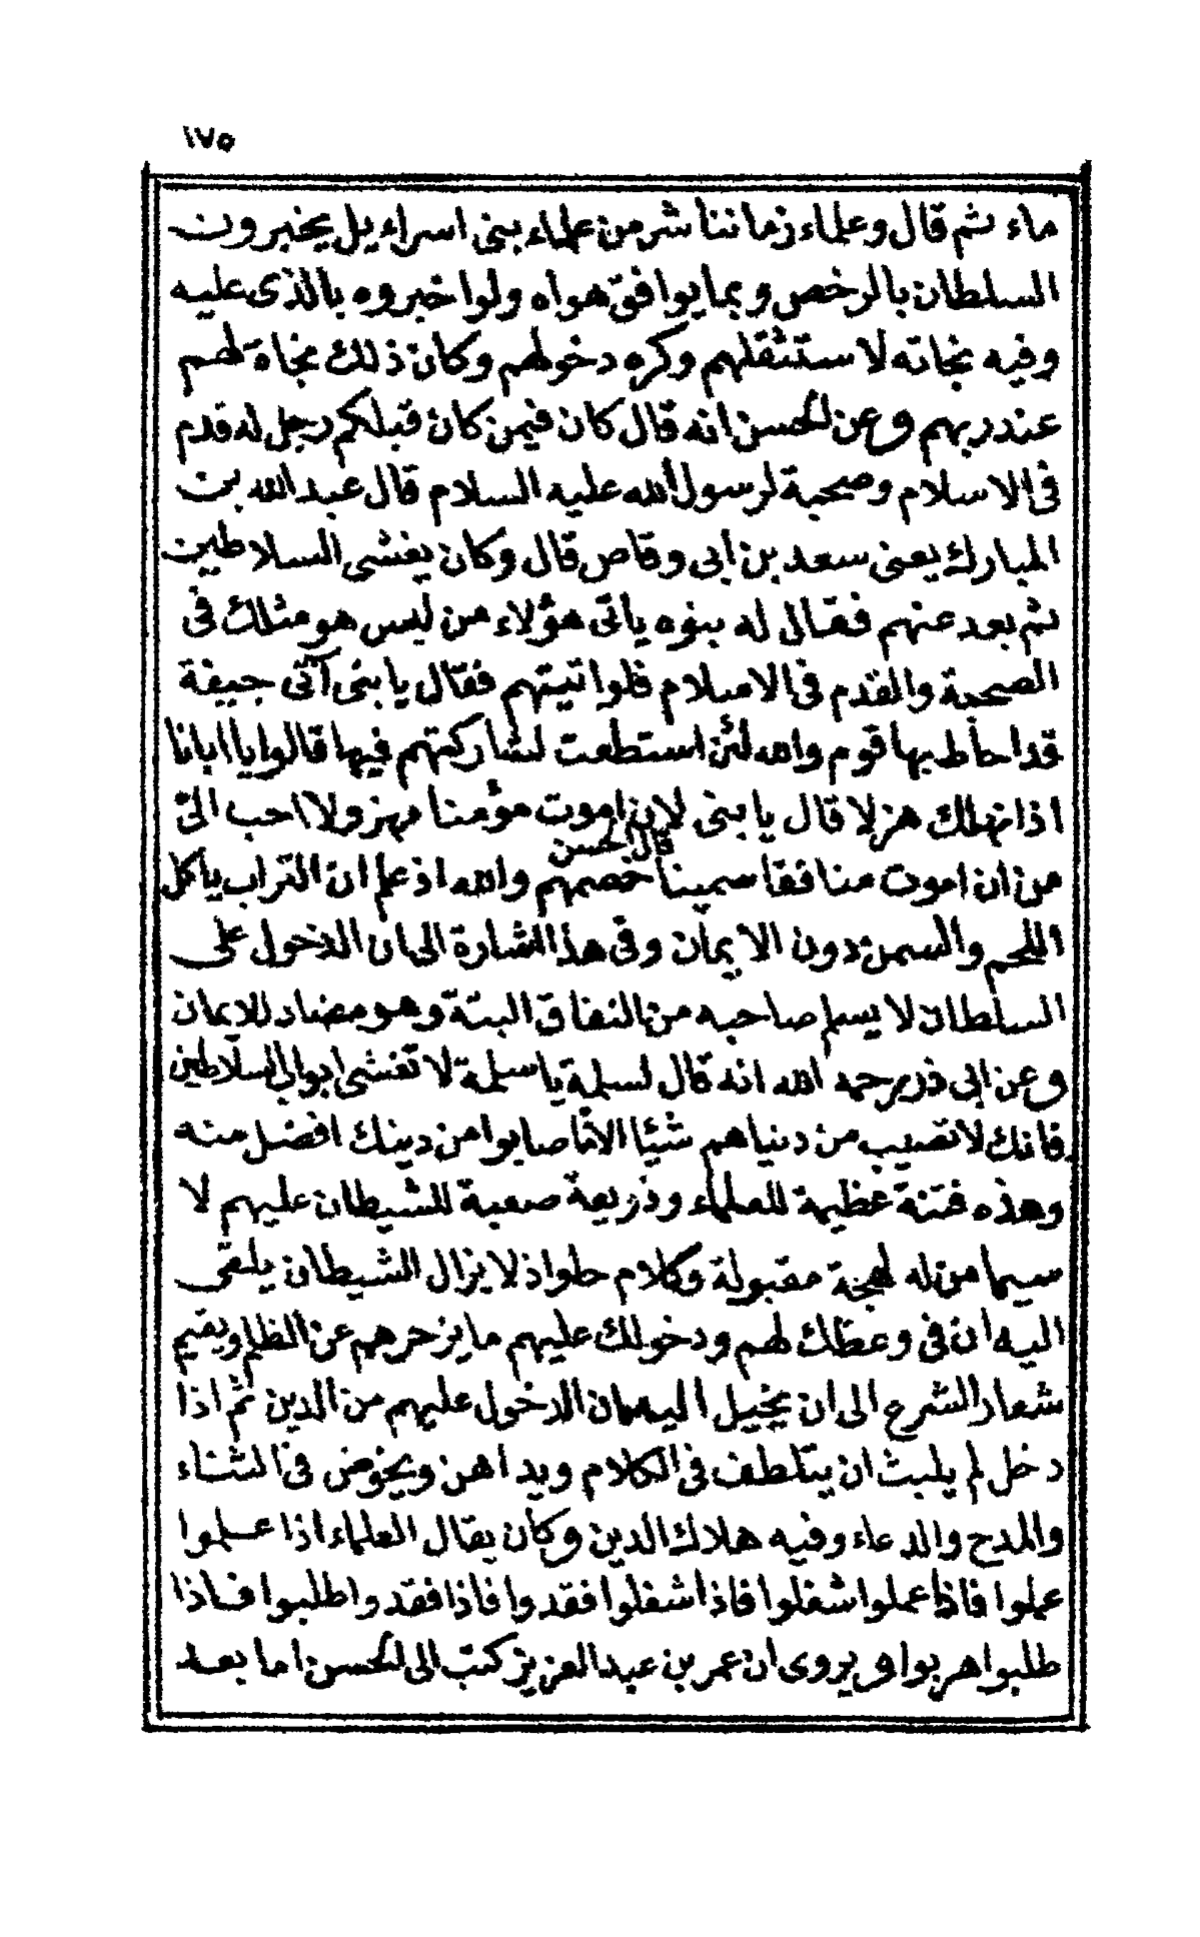 ١٧٥
ماء ثم قال وعلماء زماننا شر من علماء بنى اسراءيل يخبرون
السلطان بالرخص وبما يوافق هواه ولوا خبروه بالذى عليه
وفيه نجاته لاستثقلهم وكره دخولهم وكان ذلك نجاة لهم
عند ربهم وعن الحسن انه قال كان فيمن كان قبلكم رجل له قدم
فى الاسلام وصحبة لرسول الله عليه السلام قال عبد الله بن
المبارك يعنى سعد بن أبى وقاص قال وكان يغشى السلاطين
ثم بعد عنهم فقال له بنوه يأتى هؤلاء من ليس هو مثلك فى
الصحبة والقدم فى الاسلام فلوا تيتهم فقال يا بنى آتى جيفة
قد احاط بها قوم والله لئن استطعت لشاركتهم فيها قالوا يا ابانا
اذا نهلك هزلا قال يا بنى لان اموت مؤمنا مهزولا احب الىّ
قال الحسن
من ان اموت منافقا سمينا خصمهم والله اذ علم ان التراب ياكل
اللحم والسمن دون الايمان وفى هذا اشارة الى ان الدخول على
السلطان لا يسلم صاحبه من النفاق البتة وهو مضاد للايمان
وعن ابى ذر رحمه الله انه قال لسلمة يا سلمة لا تغشى ابواب السلاطين
فانك لا تصيب من دنياهم شيئا الا اصابوا من دينك افضل منه
وهذه فتنة عظيمة للعلماء وذريعة صعبة للشيطان عليهم لا
سيما من له لهجة مقبولة وكلام حلو اذ لا يزال الشيطان يلقى
اليه ان فى وعظك لهم ودخولك عليهم ما يزجرهم عن الظلم ويقيم
شعار الشرع الى ان يخيل اليه ان الدخول عليهم من الدين ثم اذا
دخل لم يلبث ان يتلطف فى الكلام ويداهن ويخوض فى الثناء
والمدح والدعاء وفيه هلاك الدين وكان يقال العلماء اذا علموا
عملوا فاذا عملوا شغلوا فاذا شغلوا فقدوا فاذا فقدوا طلبوا فاذا
طلبوا هربوا ويروى ان عمر بن عبد العزيز كتب الى الحسن اما بعد